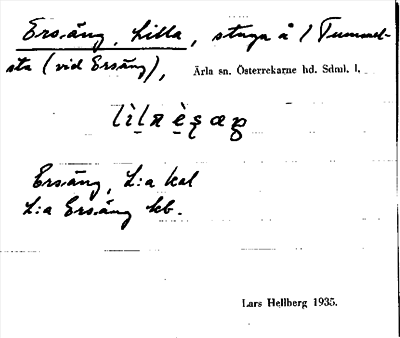 Ersäng, Lilla, stuga å 1 Tummel-
sta (vid Ersäng),
Ärla sn. Österrekarne hd. Sdml. l.
Ersäng, L:a kal
L:a Ersäng kb.
Lars Hellberg 1935.